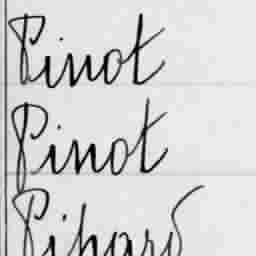 Pinot
Pinot
Pihard